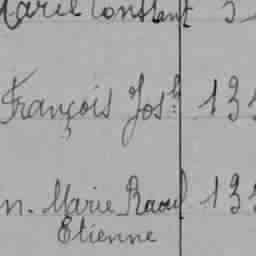 Marie Constant
François Josh 13
n. Marie Raoul 13
Etienne